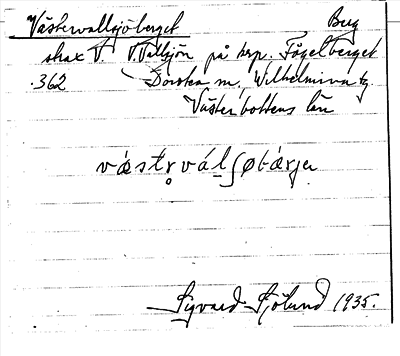 Västervallsjöberget Berg
strax V. V. Vallsjön på krp. Fågelberget
362 Dorotea sn, Wilhelmina tg
Västerbottens län
västr̥vál̠ʃøbárjə
Sigvard Sjölund 1935.